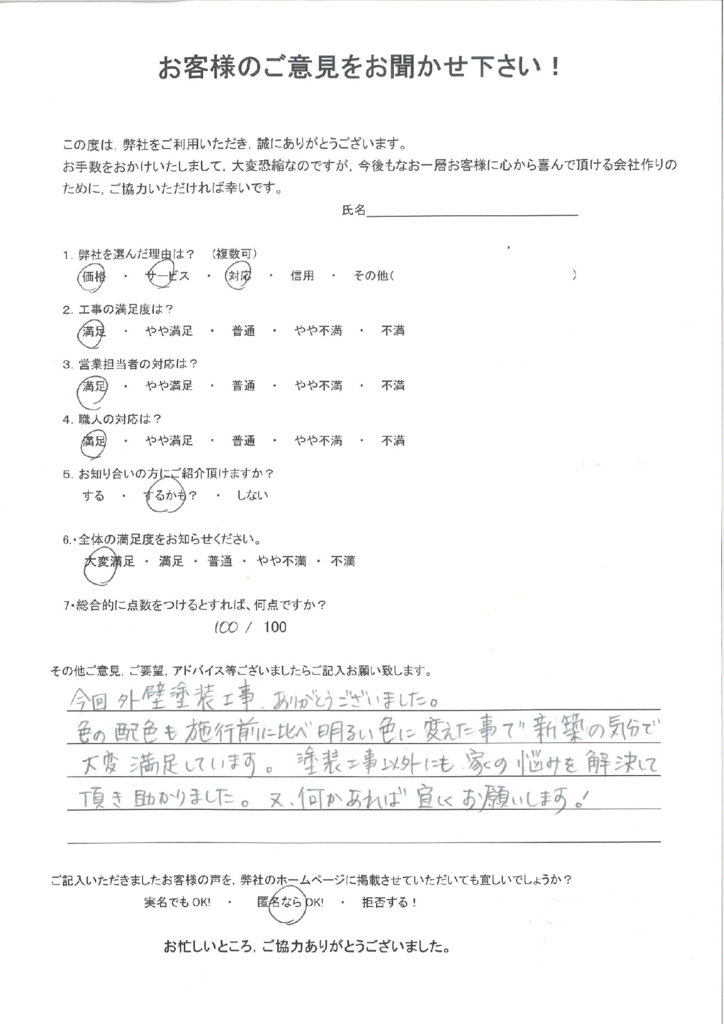 お客様のご意見をお聞かせ下さい！
この度は，弊社をご利用いただき，誠にありがとうございます。
お手数をおかけいたしまして，大変恐縮なのですが，今後もなお一層お客様に心から喜んで頂ける会社作りの
ために，ご協力いただければ幸いです。
氏名
1．弊社を選んだ理由は？　（複数可）
価格　・　サービス　・　対応　・　信用　・　その他（　）
2．工事の満足度は？
満足　・　やや満足　・　普通　・　やや不満　・　不満
3．営業担当者の対応は？
満足　・　やや満足　・　普通　・　やや不満　・　不満
4．職人の対応は？
満足　・　やや満足　・　普通　・　やや不満　・　不満
5．お知り合いの方にご紹介頂けますか？
する　・　するかも？　・　しない
6．・全体の満足度をお知らせください。
大変満足　・　満足　・　普通　・　やや不満　・　不満
7・総合的に点数をつけるとすれば、何点ですか？
100 / 100
その他ご意見，ご要望，アドバイス等ございましたらご記入お願い致します。
今回外壁塗装工事、ありがとうございました。
色の配色も施行前に比べ明るい色に変えた事で新築の気分で
大変満足しています。塗装工事以外にも家の悩みを解決して
頂き助かりました。又、何かあれば宜しくお願いします！
ご記入いただきましたお客様の声を，弊社のホームページに掲載させていただいても宜しいでしょうか？
実名でもOK!　・　匿名ならOK!　・　拒否する！
お忙しいところ，ご協力ありがとうございました。